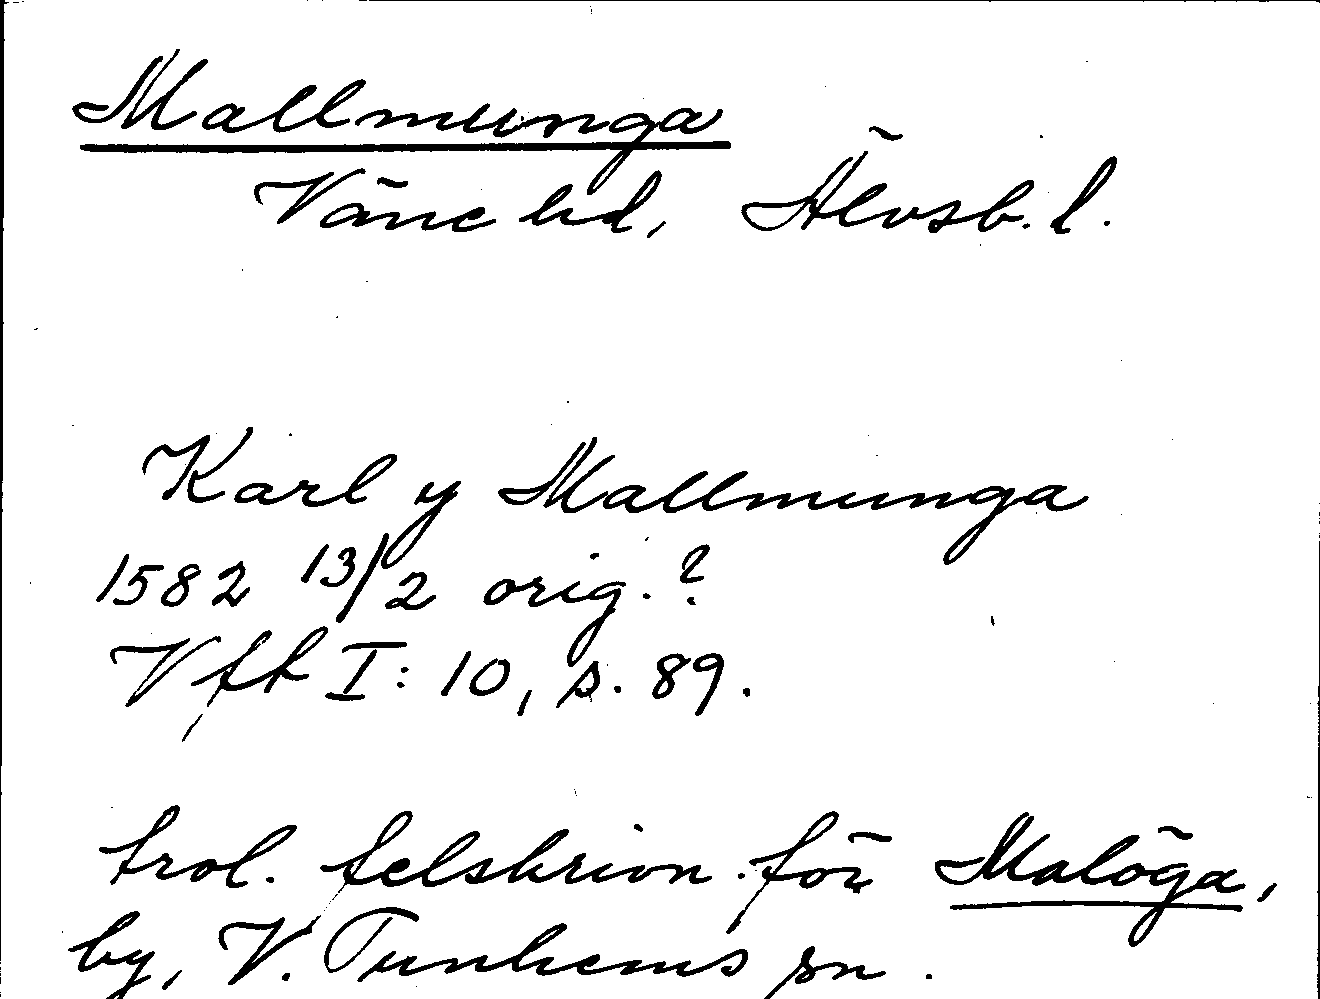 Mallmunga
Väne hd, Älvsb. l.
Karl y Mallmunga
1582 13/2 orig. ?
Vft I: 10, s. 89.
trol. felskrivn. för Malöga,
by, V. Tunhems sn.